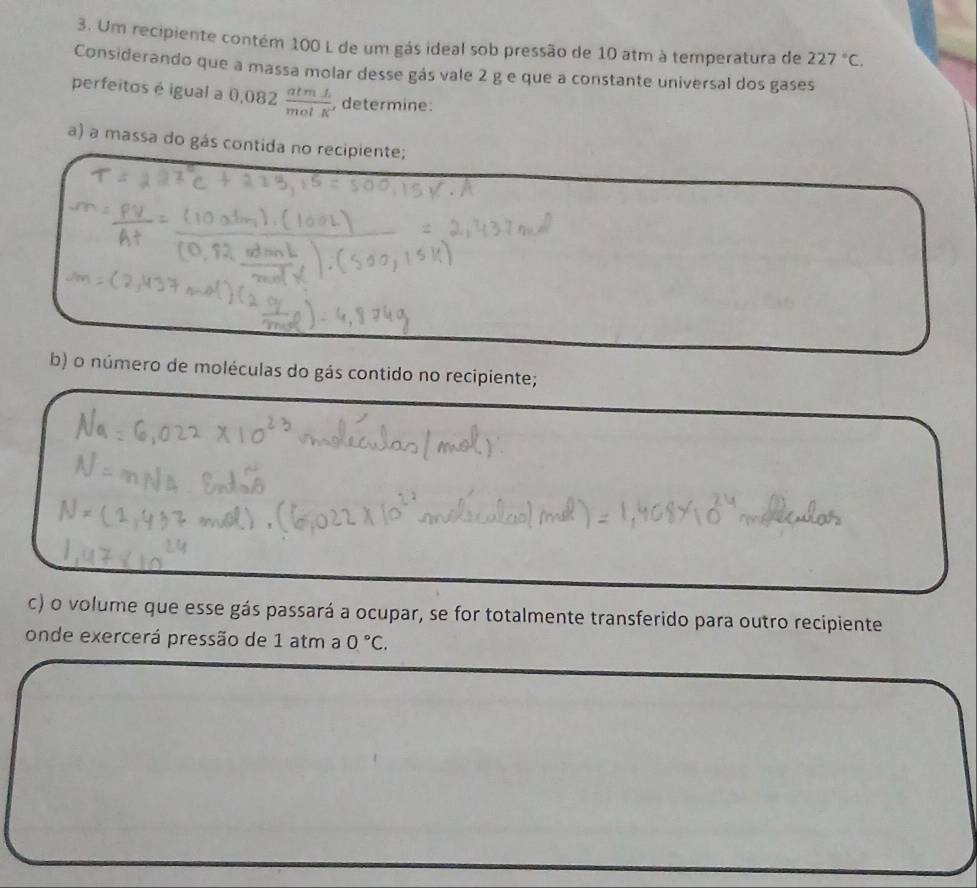 3. Um recipiente contém 100 L de um gás ideal sob pressão de 10 atm à temperatura de 227 °C.
Considerando que a massa molar desse gás vale 2 g e que a constante universal dos gases
perfeitos é igual a 0,082 atm .L / mol .K, determine:
a) a massa do gás contida no recipiente;
T = 227°C + 273,15 = 500,15K.
n = PV/Rt = (10 atm).(100L) / (0,82 atm L/mol K).(500,15K) = 2,437 mol
m = (2,437 mol)(2 g/mol) = 4,874g
b) o número de moléculas do gás contido no recipiente;
Na = 6,022 x 10²³ moléculas/mol).
N = nNA Então
N = (2,437 mol).(6,022 x 10²³ moléculas/mol) = 1,468 x 10²⁴ moléculas
1,47 x 10²⁴
c) o volume que esse gás passará a ocupar, se for totalmente transferido para outro recipiente
onde exercerá pressão de 1 atm a 0 °C.